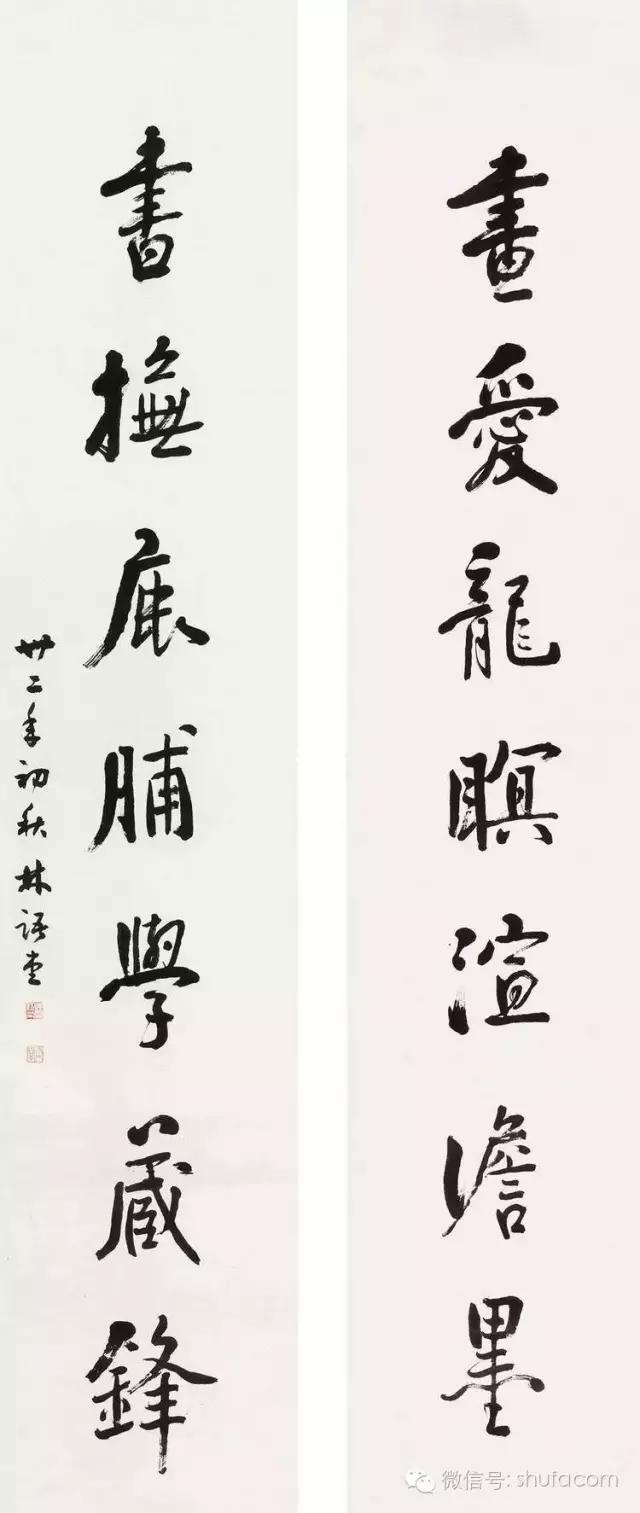 畫愛龍瞑渲澹墨
書撫虒脯學藏鋒
卅二年初秋林語堂
微信号: shufacom